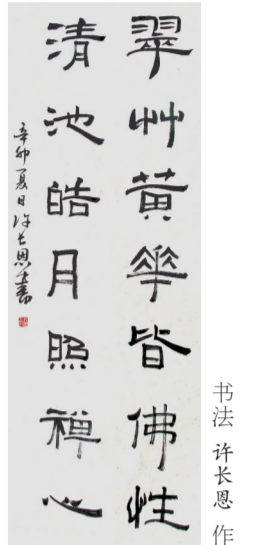 翠艸黄華皆佛性
清池皓月照禅心
辛卯夏日许长恩书
书法 许长恩 作